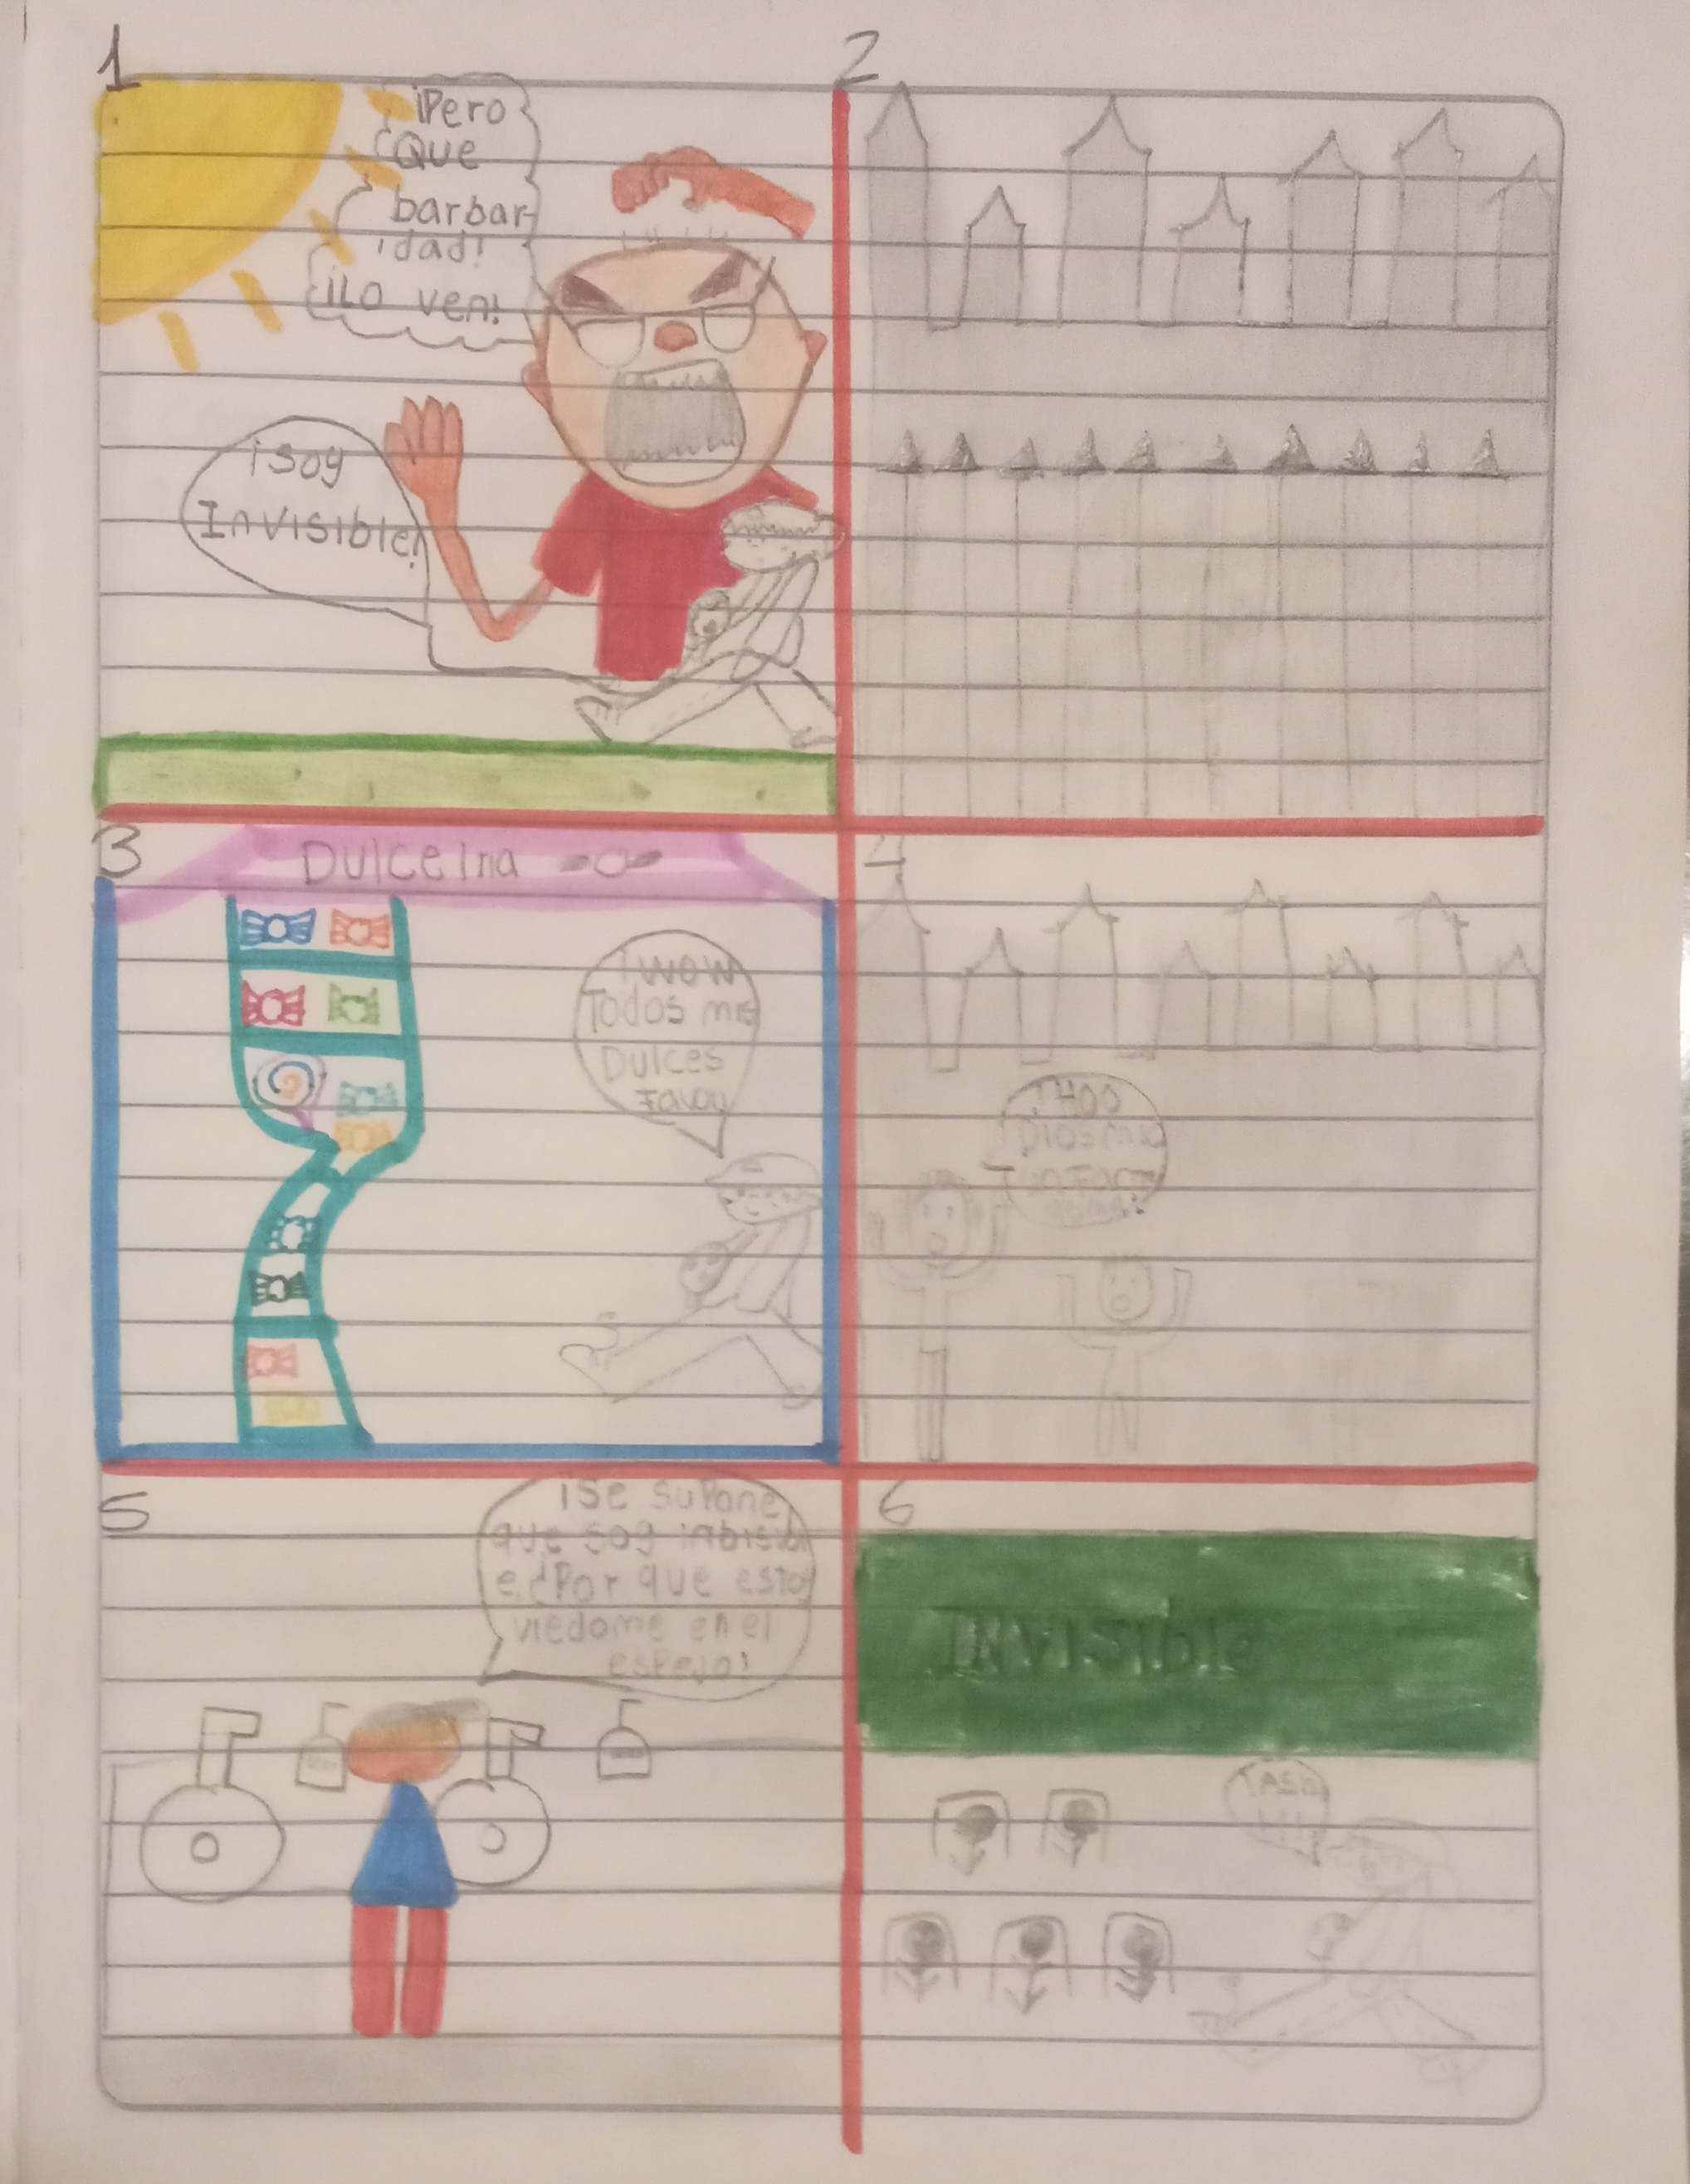 1
¡Pero
Que
barbar-
idad!
¡Lo ven!
¡Soy
Invisible!
2
3
Dulceina
¡wow
Todos mis
Dulces
Favo
4
¡Hoo
Dios mio
un Fant
asma!
5
¡Se supone
que soy inbisibl
e ¿Por que esto
viedome en el
espejo!
6
INVISIBLE